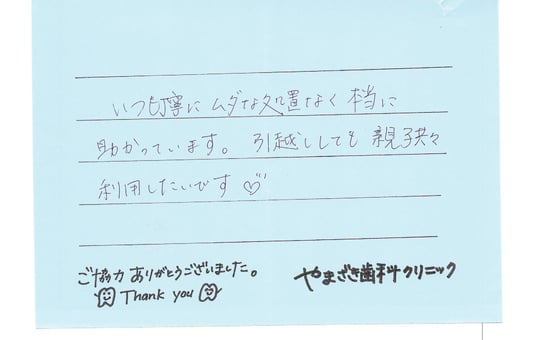 いつも丁寧に ムダな処置なく 本当に
助かっています。 引越ししても 親子共々
利用したいです♡
ご協力 ありがとうございました。
Thank you
やまざき歯科クリニック